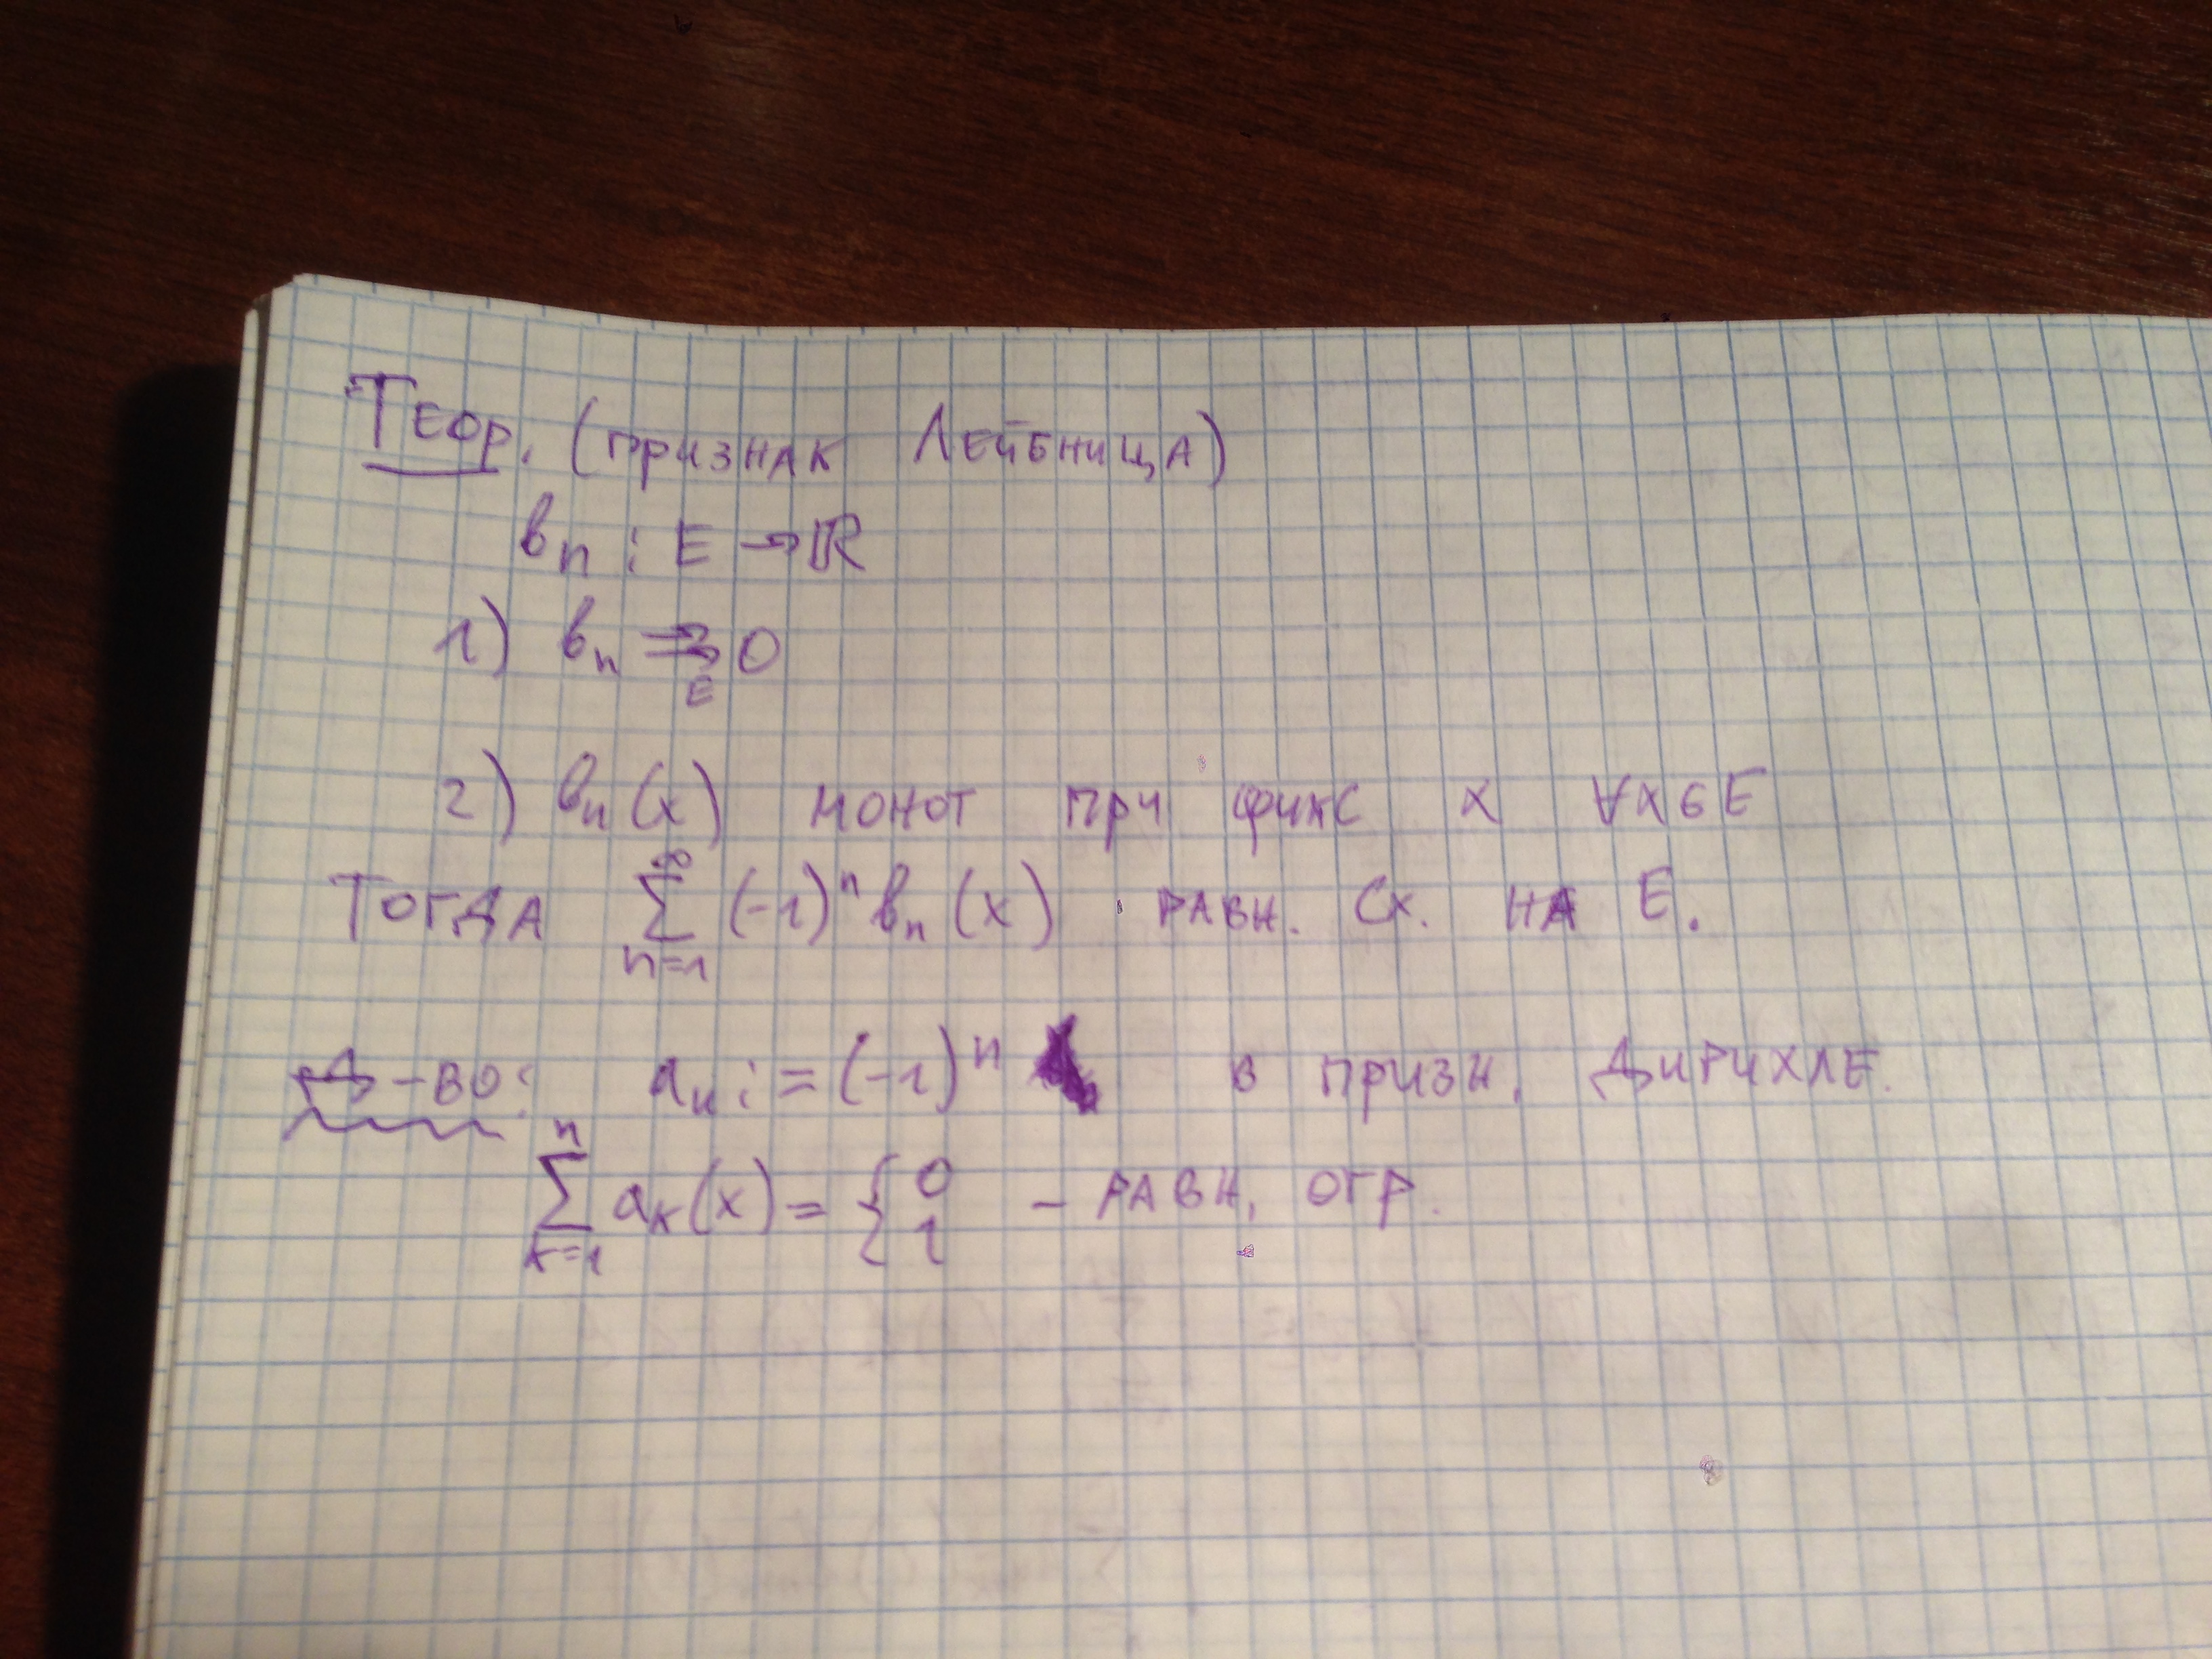 Теор. (признак Лейбница)
bₙ : E → ℝ
1) bₙ ⇉ 0
E
2) bₙ(x) монот при фикс x ∀x∈E
Тогда ∑ₙ₌₁^∞ (-1)ⁿ bₙ(x) равн. сх. на E.
Д-во: aₙ := (-1)ⁿ в призн. Дирихле.
∑ₖ₌₁ⁿ aₖ(x) = { 0 1 - равн. огр.